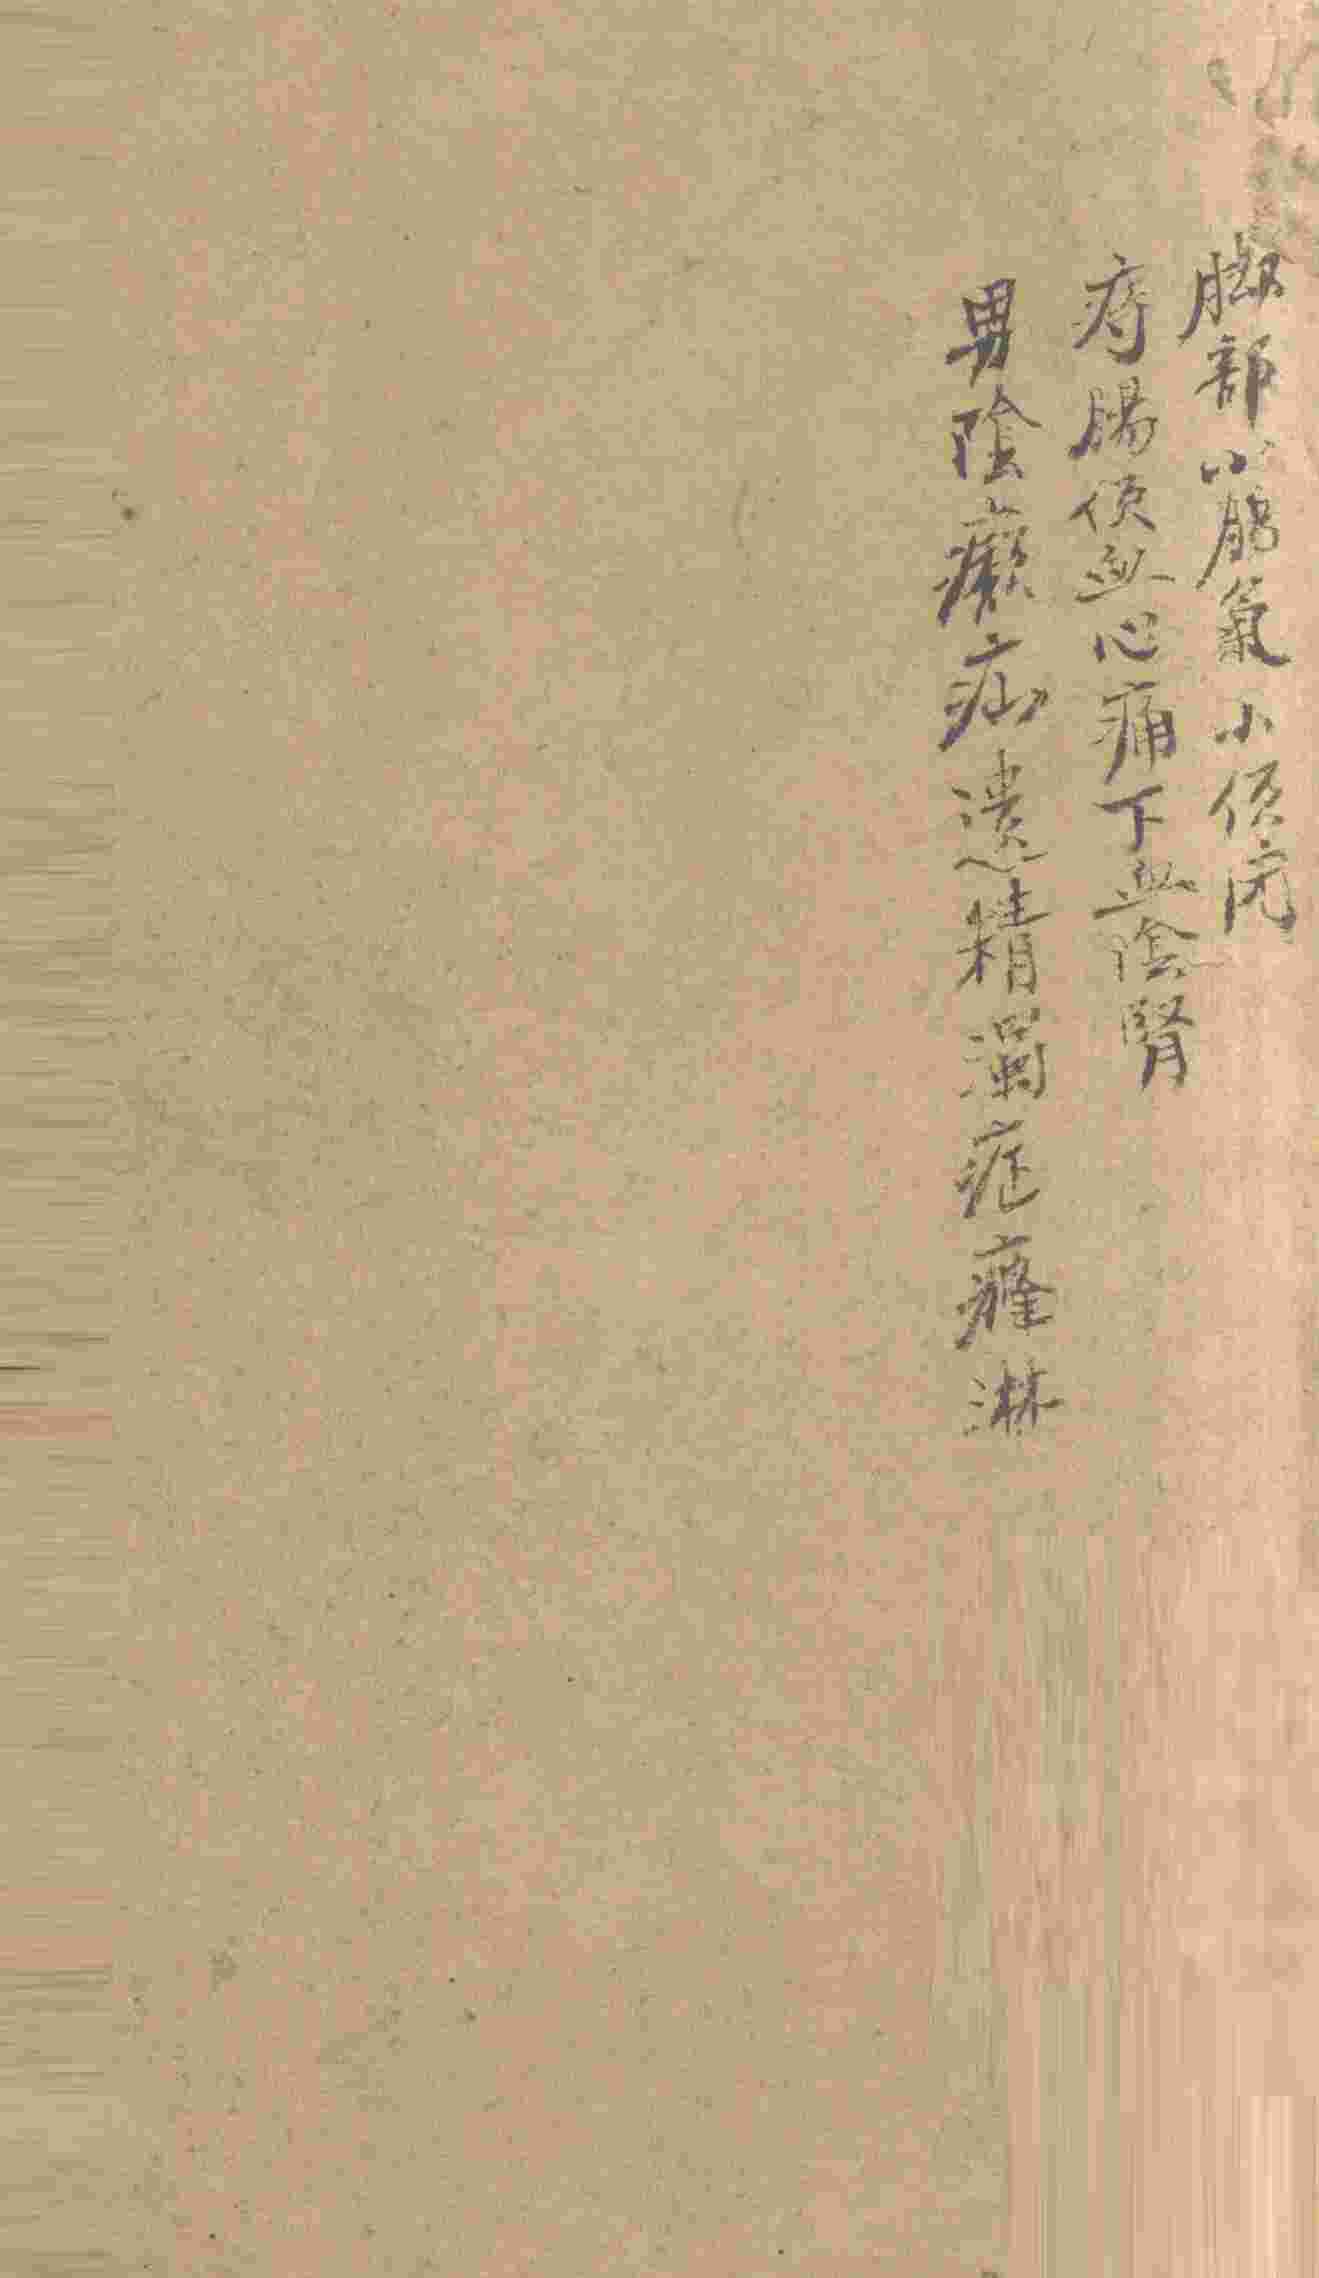 脚部小腸氣小便闭
痔腸便血心痛下血陰腎
男陰癲疝遺精濁症癃淋